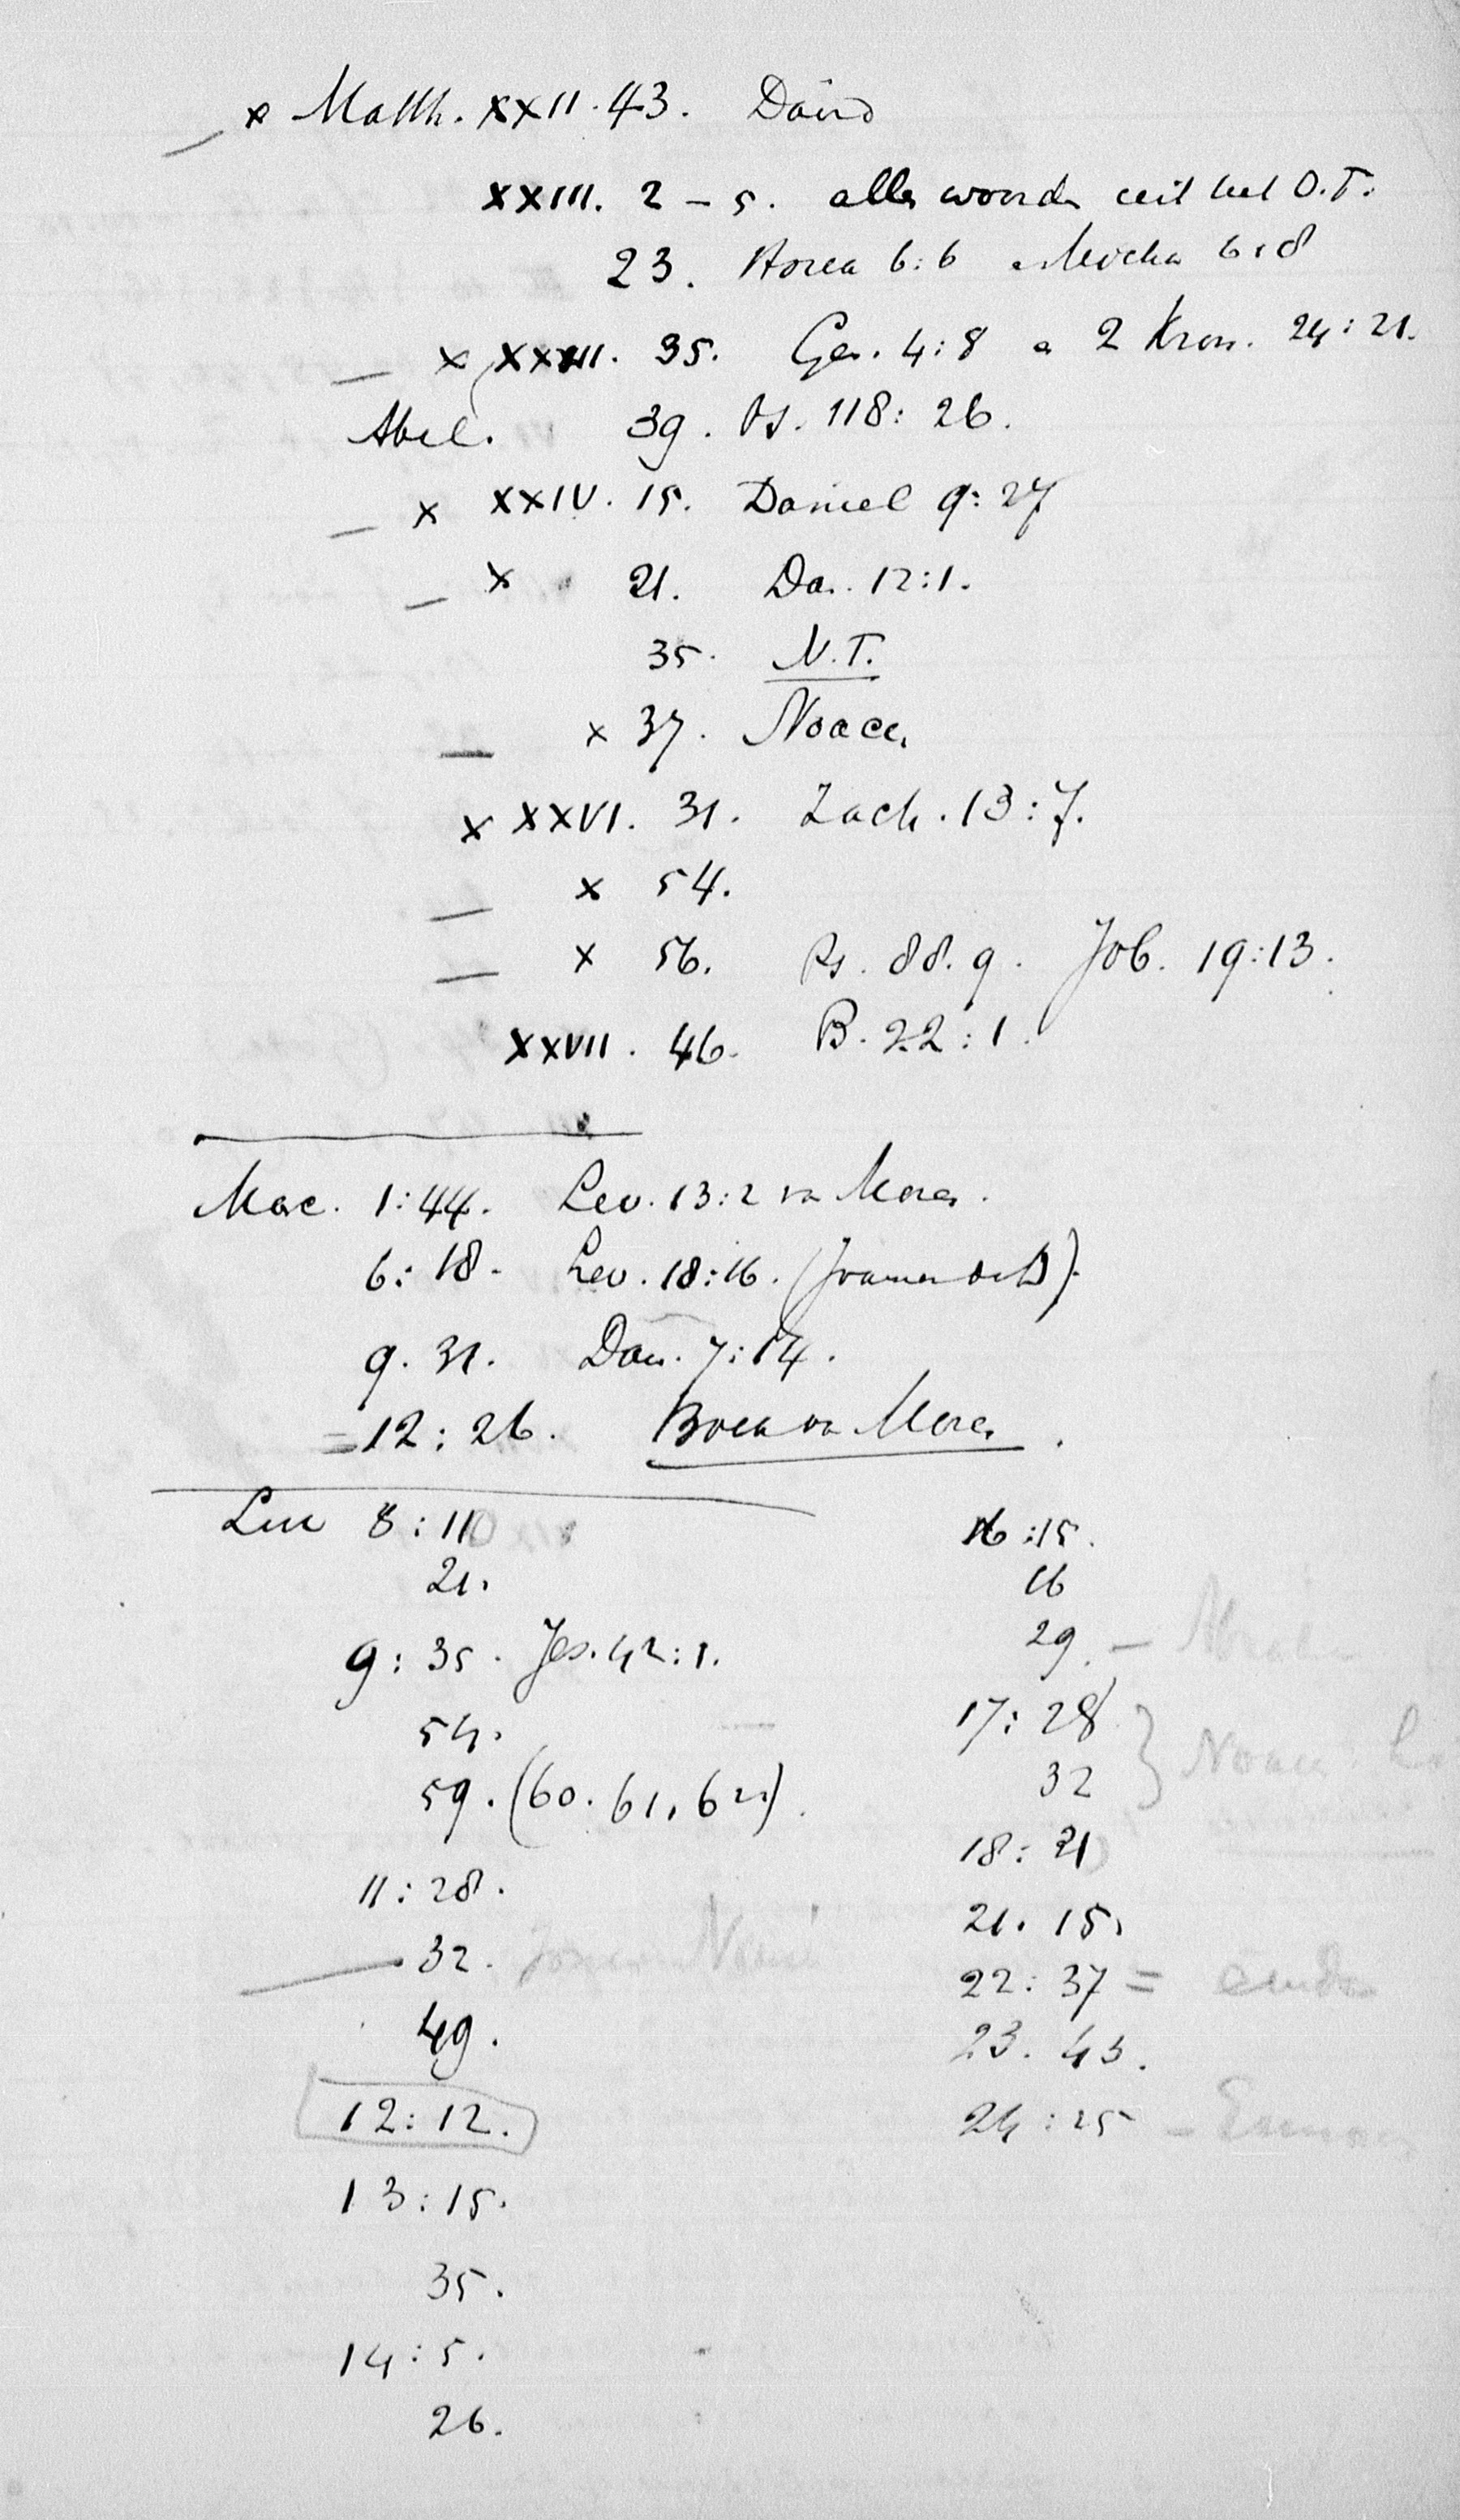 x Matth. XXII. 43. David
XXIII. 2 – 5. alles woorden uit het O.T.
23. Hosea 6:6 Micha 6:8
x XXIII. 35. Gen. 4:8 en 2 Kron. 24:21.
Abel. 39. Ps. 118:26.
x XXIV. 15. Daniel 9:27
x 21. Dan. 12:1.
35. N.T.
x 37. Noach
x XXVI. 31. Zach. 13:7.
x 54.
x 56. Ps. 88.9. Job. 19:13.
XXVII. 46. Ps. 22:1.
Marc. 1:44. Lev. 13:2 van Mozes.
6:18. Lev. 18:16.
9.31. Dan. 7:14.
=12:26. Boek van Mozes.
Luc 8:11
21.
9:35. Jes. 42:1.
54.
59. (60. 61, 62.)
11:28.
32.
49.
12:12.
13:15.
35.
14:5.
26.
16:15.
16
29. –
17:28 } Noach
32
18:21
21. 15.
22:37 = einde
23. 43.
24:25 –